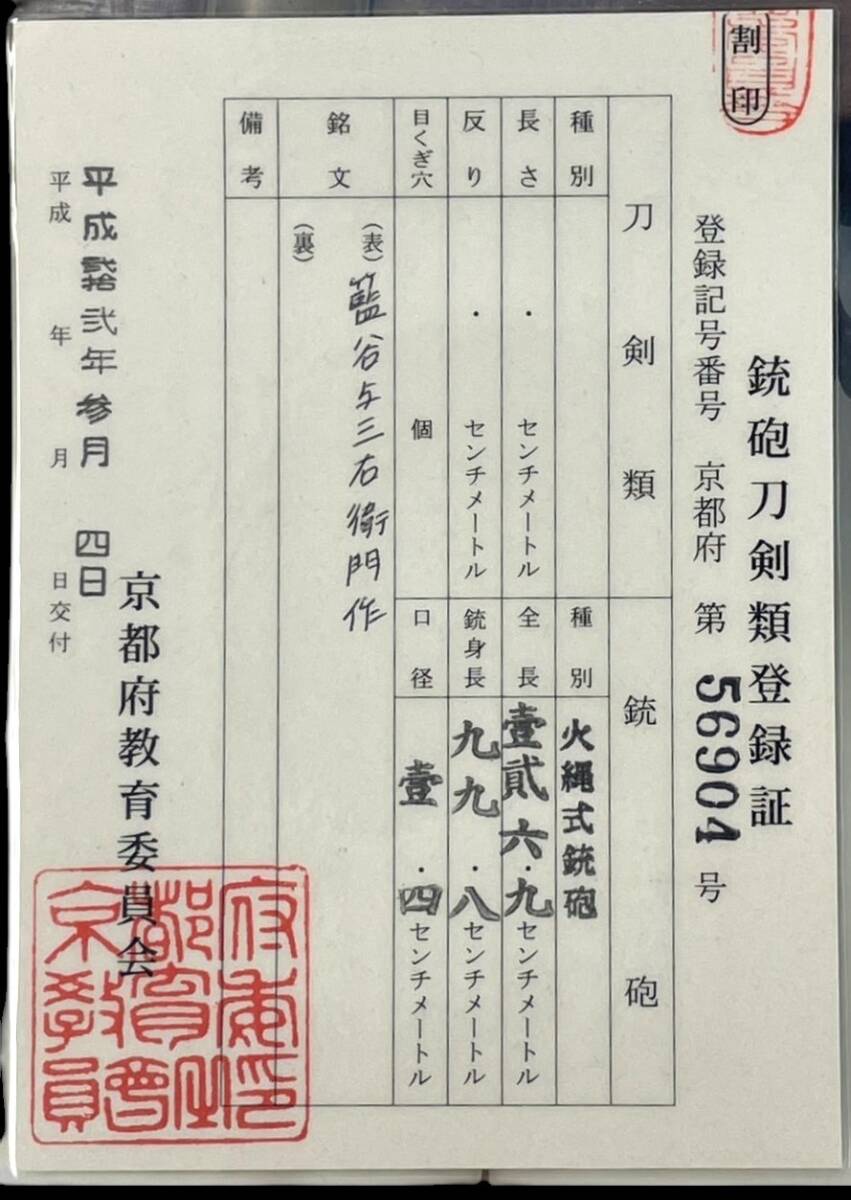 割印
銃砲刀剣類登録証
登録記号番号 京都府 第 56904 号
刀剣類
銃砲
種別
種別 火縄式銃砲
長さ ・ センチメートル
全長 壹貳六・九センチメートル
反り ・ センチメートル
銃身長 九九・八センチメートル
目くぎ穴 個
口径 壹・四センチメートル
銘文
(表) 籃谷与三右衛門作
(裏)
備考
平成貮拾弐年参月四日
平成 年 月 日交付
京都府教育委員会